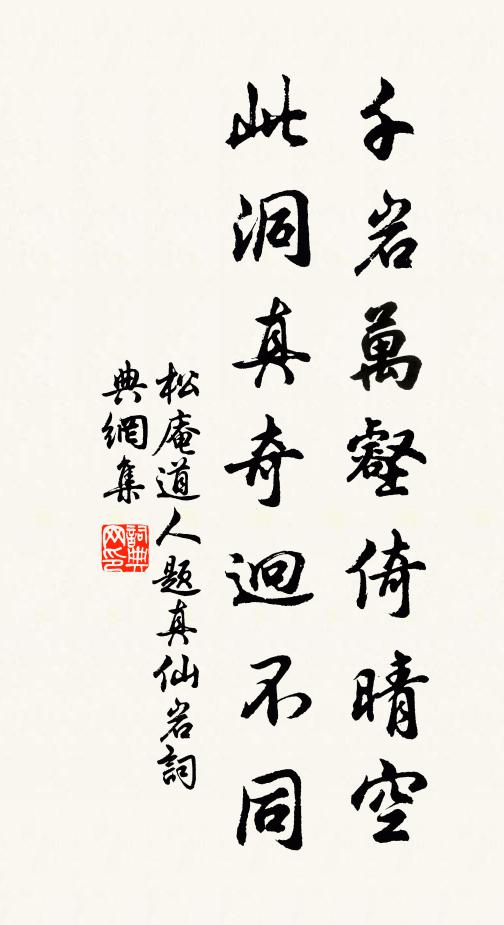 千岩萬壑倚晴空
此洞真奇迥不同
松庵道人题真仙岩詞
典網集
詞典网印